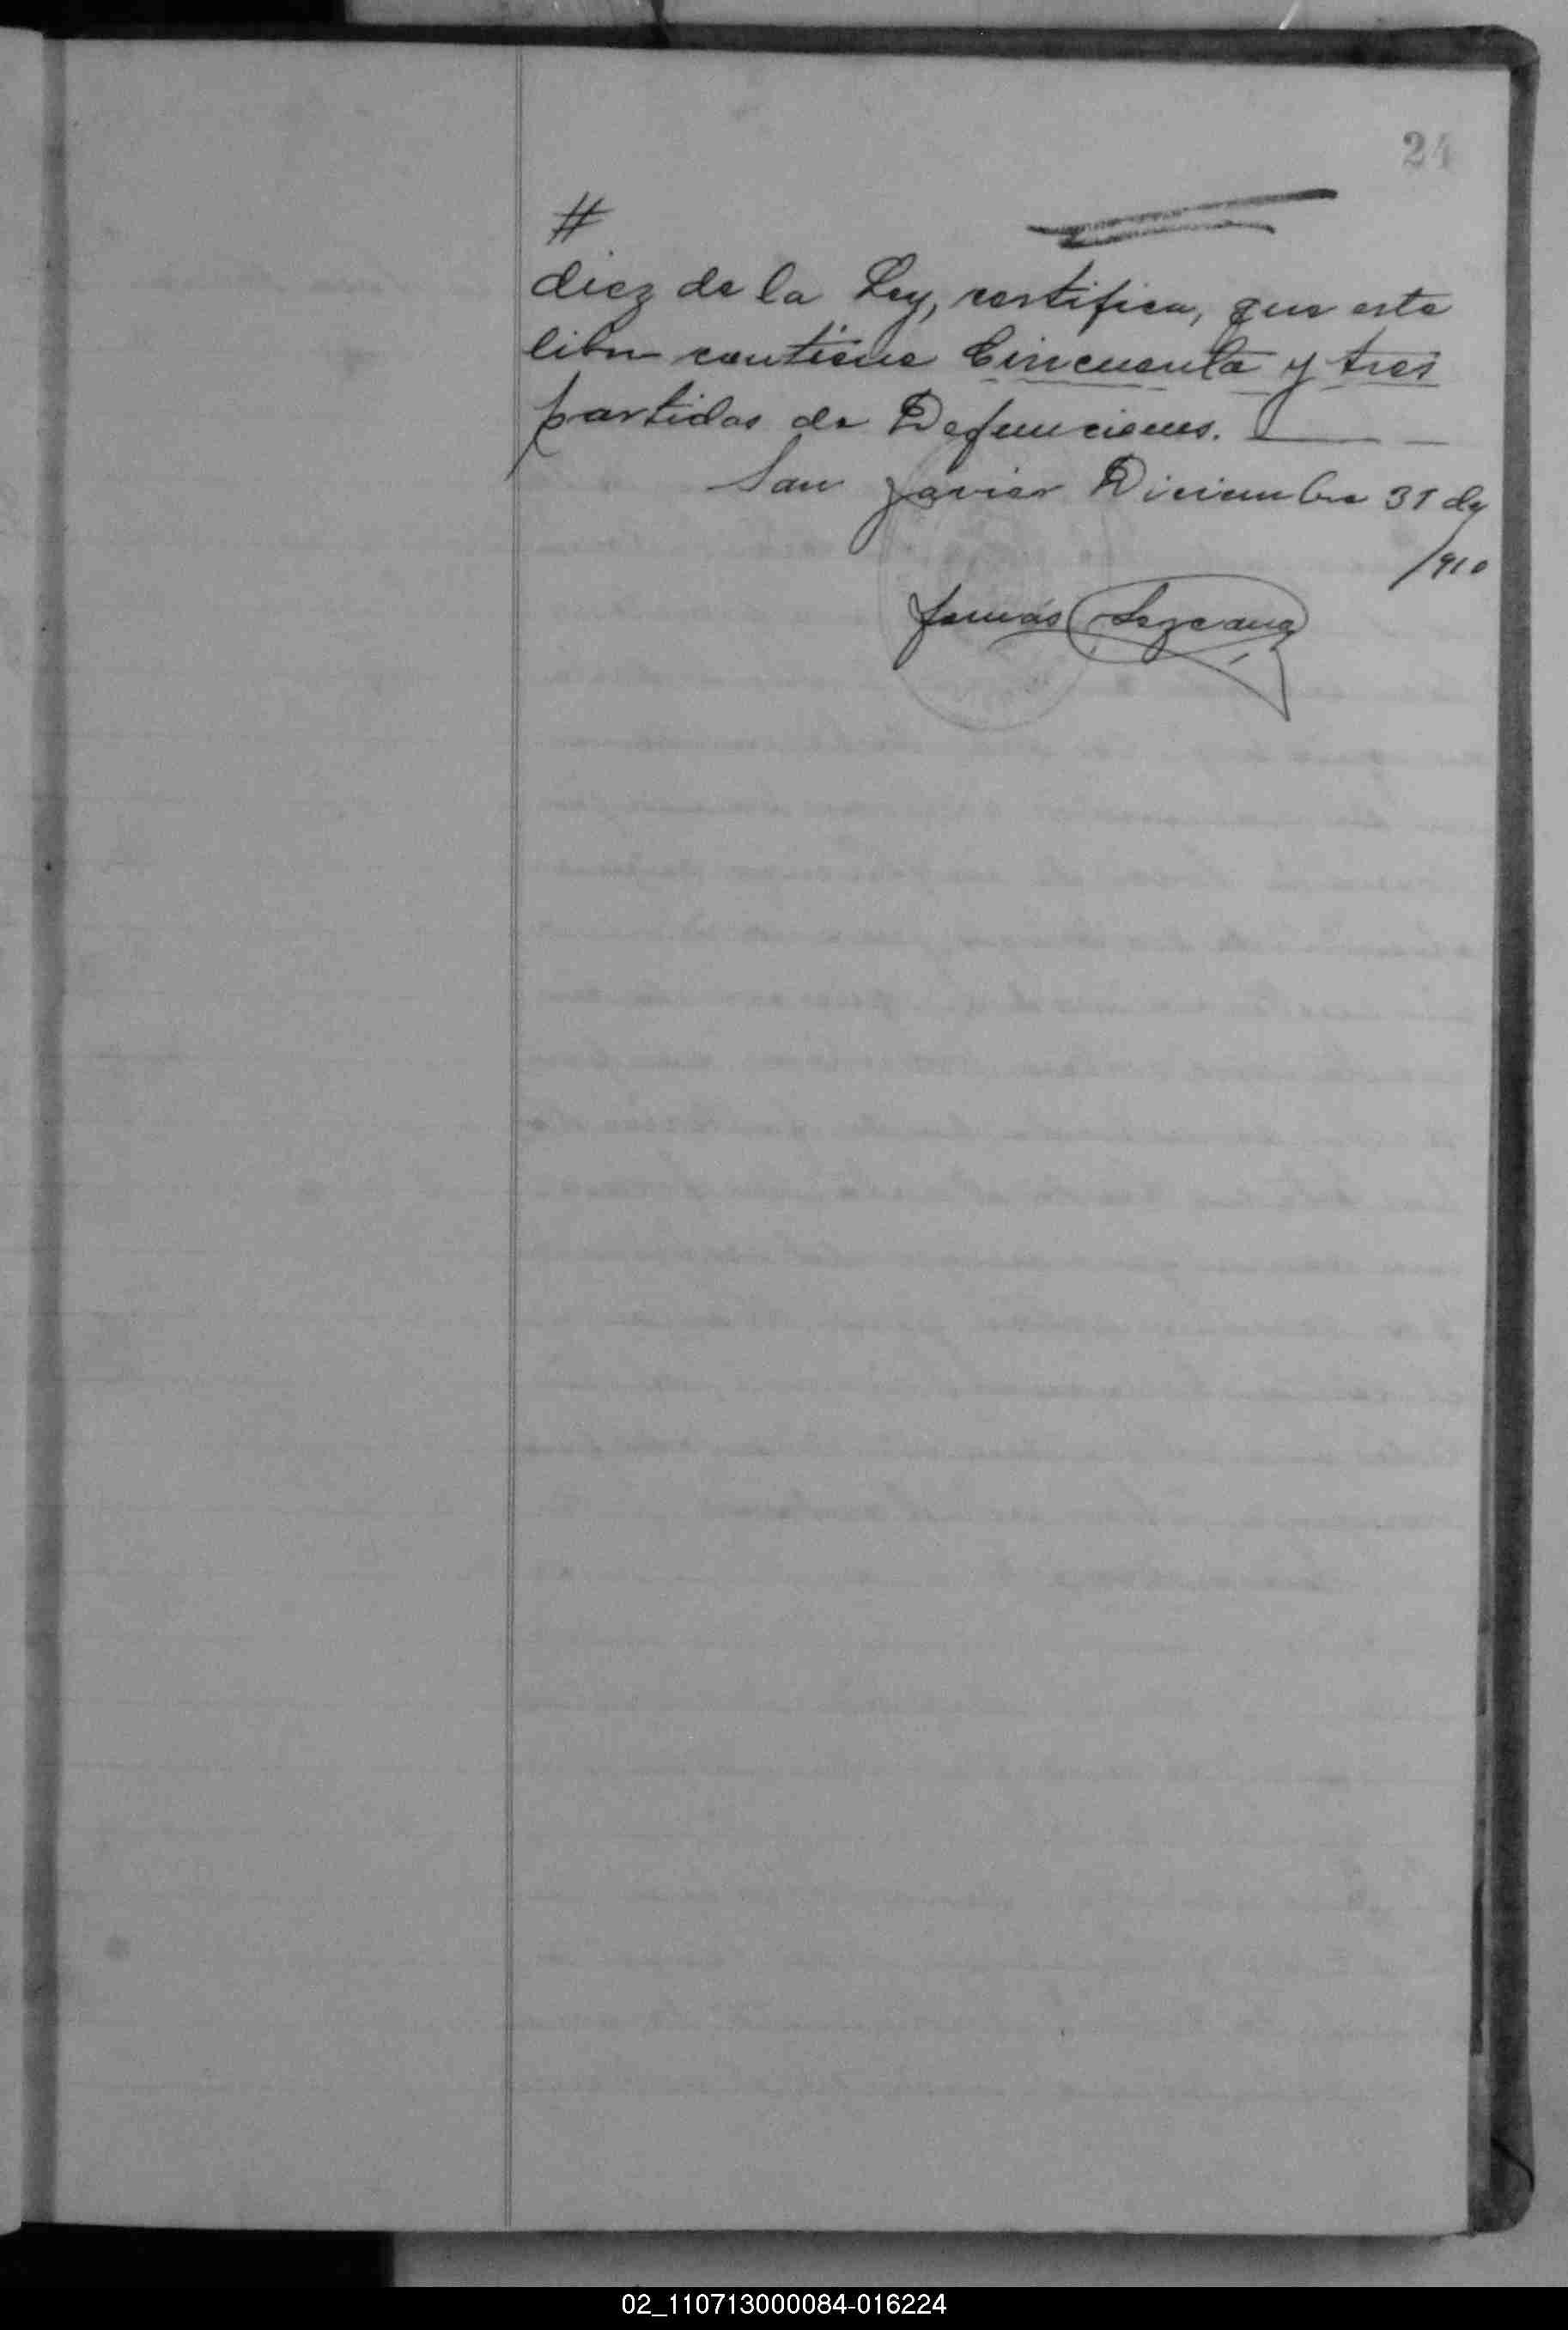 24
#
diez de la Ley, certifica, que este
libro contiene Cincuenta y tres
partidas de Defunciones.
San Javier Diciembre 31 de
1910
Tomás Lezcano
02_110713000084-016224